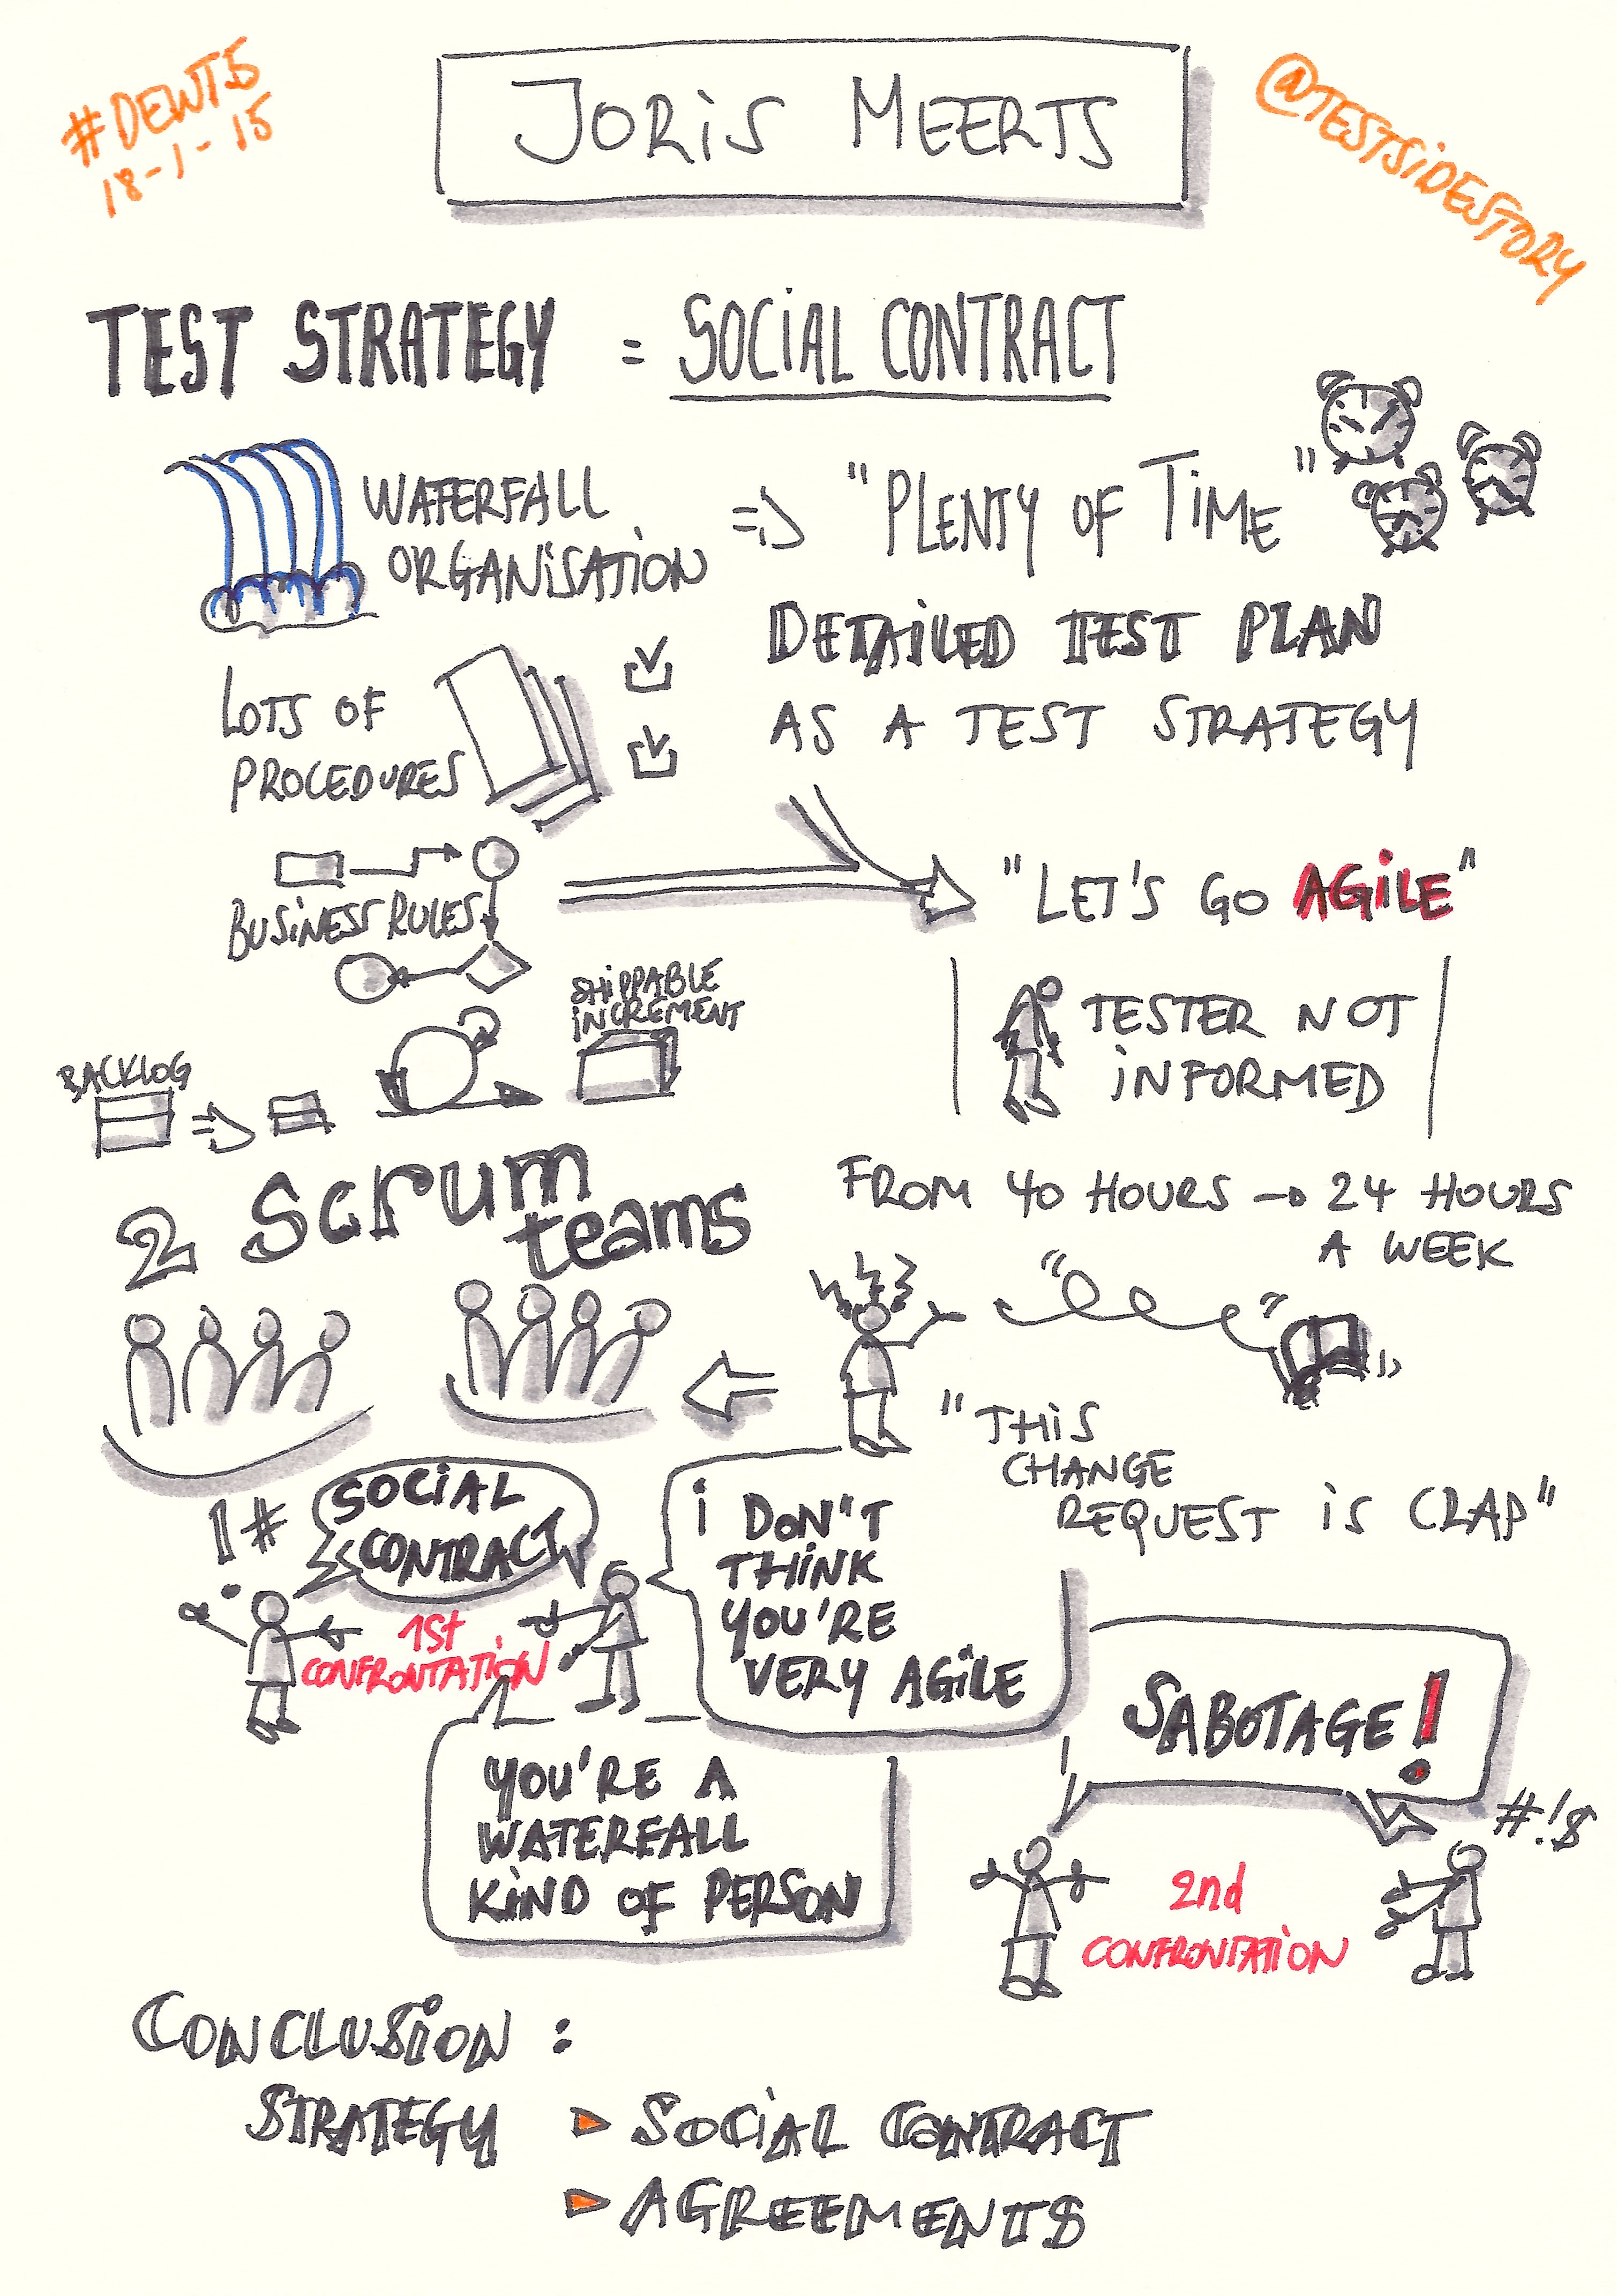 #DEWT5
18-1-15
JORiS MEERTS
@TESTSiDESTORY
TEST STRATEGY = SOCiAL CONTRACT
WATERFALL
ORGANiSATiON
=> "PLENTY OF TiME"
DETAiLED TEST PLAN
AS A TEST STRATEGY
LOTS OF
PROCEDURES
BUSiNESS RULES
"LET'S GO AGiLE"
TESTER NOT
iNFORMED
SHiPPABLE
iNCREMENT
BACKLOG
2 Scrum
teams
FROM 40 HOURS → 24 HOURS
A WEEK
"THiS
CHANGE
REQUEST iS CRAP"
1#
SOCiAL
CONTRACT
1St
CONFRONTATiON
i DON'T
THiNK
YOU'RE
VERY AGiLE
YOU'RE A
WATERFALL
KiND OF PERSON
SABOTAGE!
#!$
2nd
CONFRONTATiON
CONCLUSiON :
STRATEGY
SOCiAL CONTRACT
AGREEMENTS